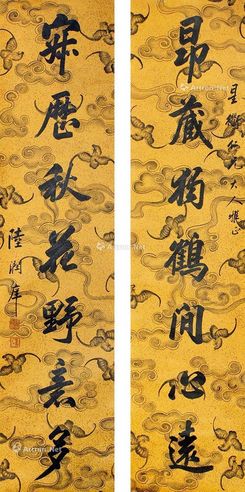 星衢仁兄大人雅正
昂藏獨鶴閒心遠
寂歷秋花野意多
陸潤庠
Artron.Net
Artron.Net